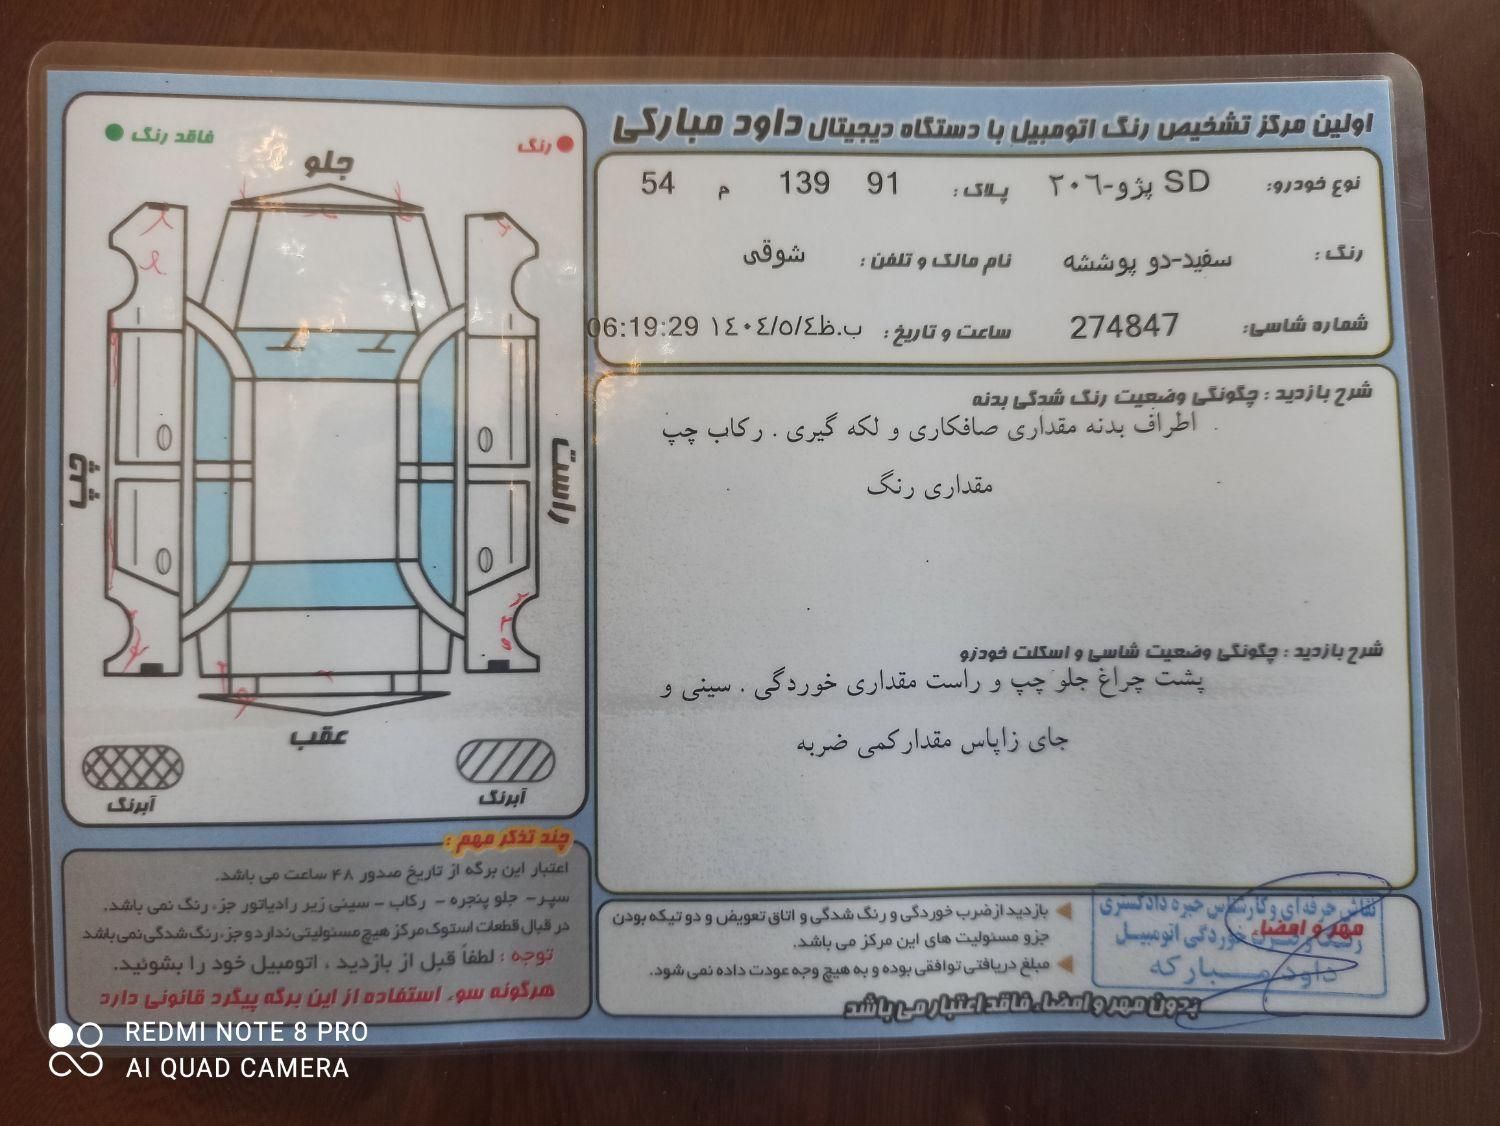 اولین مرکز تشخیص رنگ اتومبیل با دستگاه دیجیتال داود مبارکی
نوع خودرو: SD پژو-۲۰۶ پلاک: 91 139 م 54
رنگ: سفید-دو پوششه نام مالک و تلفن: شوقی
شماره شاسی: 274847 ساعت و تاریخ: ب.ظ ۱۴۰۴/۵/٤ 06:19:29
شرح بازدید: چگونگی وضعیت رنگ شدگی بدنه
اطراف بدنه مقداری صافکاری و لکه گیری . رکاب چپ
مقداری رنگ
شرح بازدید: چگونگی وضعیت شاسی و اسکلت خودرو
پشت چراغ جلو چپ و راست مقداری خوردگی . سینی و
جای زاپاس مقدارکمی ضربه
بازدید از ضرب خوردگی و رنگ شدگی و اتاق تعویض و دو تیکه بودن
جزو مسئولیت های این مرکز می باشد.
مبلغ دریافتی توافقی بوده و به هیچ وجه عودت داده نمی شود.
بدون مهر و امضاء فاقد اعتبار می باشد
مهر و امضاء
نقاش حرفه ای و کارشناس خبره دادگستری
رنگ و ضرب خوردگی اتومبیل
داود مبارکه
رنگ
فاقد رنگ
جلو
چپ
راست
عقب
آبرنگ
آبرنگ
چند تذکر مهم:
اعتبار این برگه از تاریخ صدور ۴۸ ساعت می باشد.
سپر- جلو پنجره - رکاب - سینی زیر رادیاتور جزء رنگ نمی باشد.
در قبال قطعات استوک مرکز هیچ مسئولیتی ندارد و جزء رنگ شدگی نمی باشد
توجه: لطفاً قبل از بازدید، اتومبیل خود را بشوئید.
هرگونه سوء استفاده از این برگه پیگرد قانونی دارد
REDMI NOTE 8 PRO
AI QUAD CAMERA